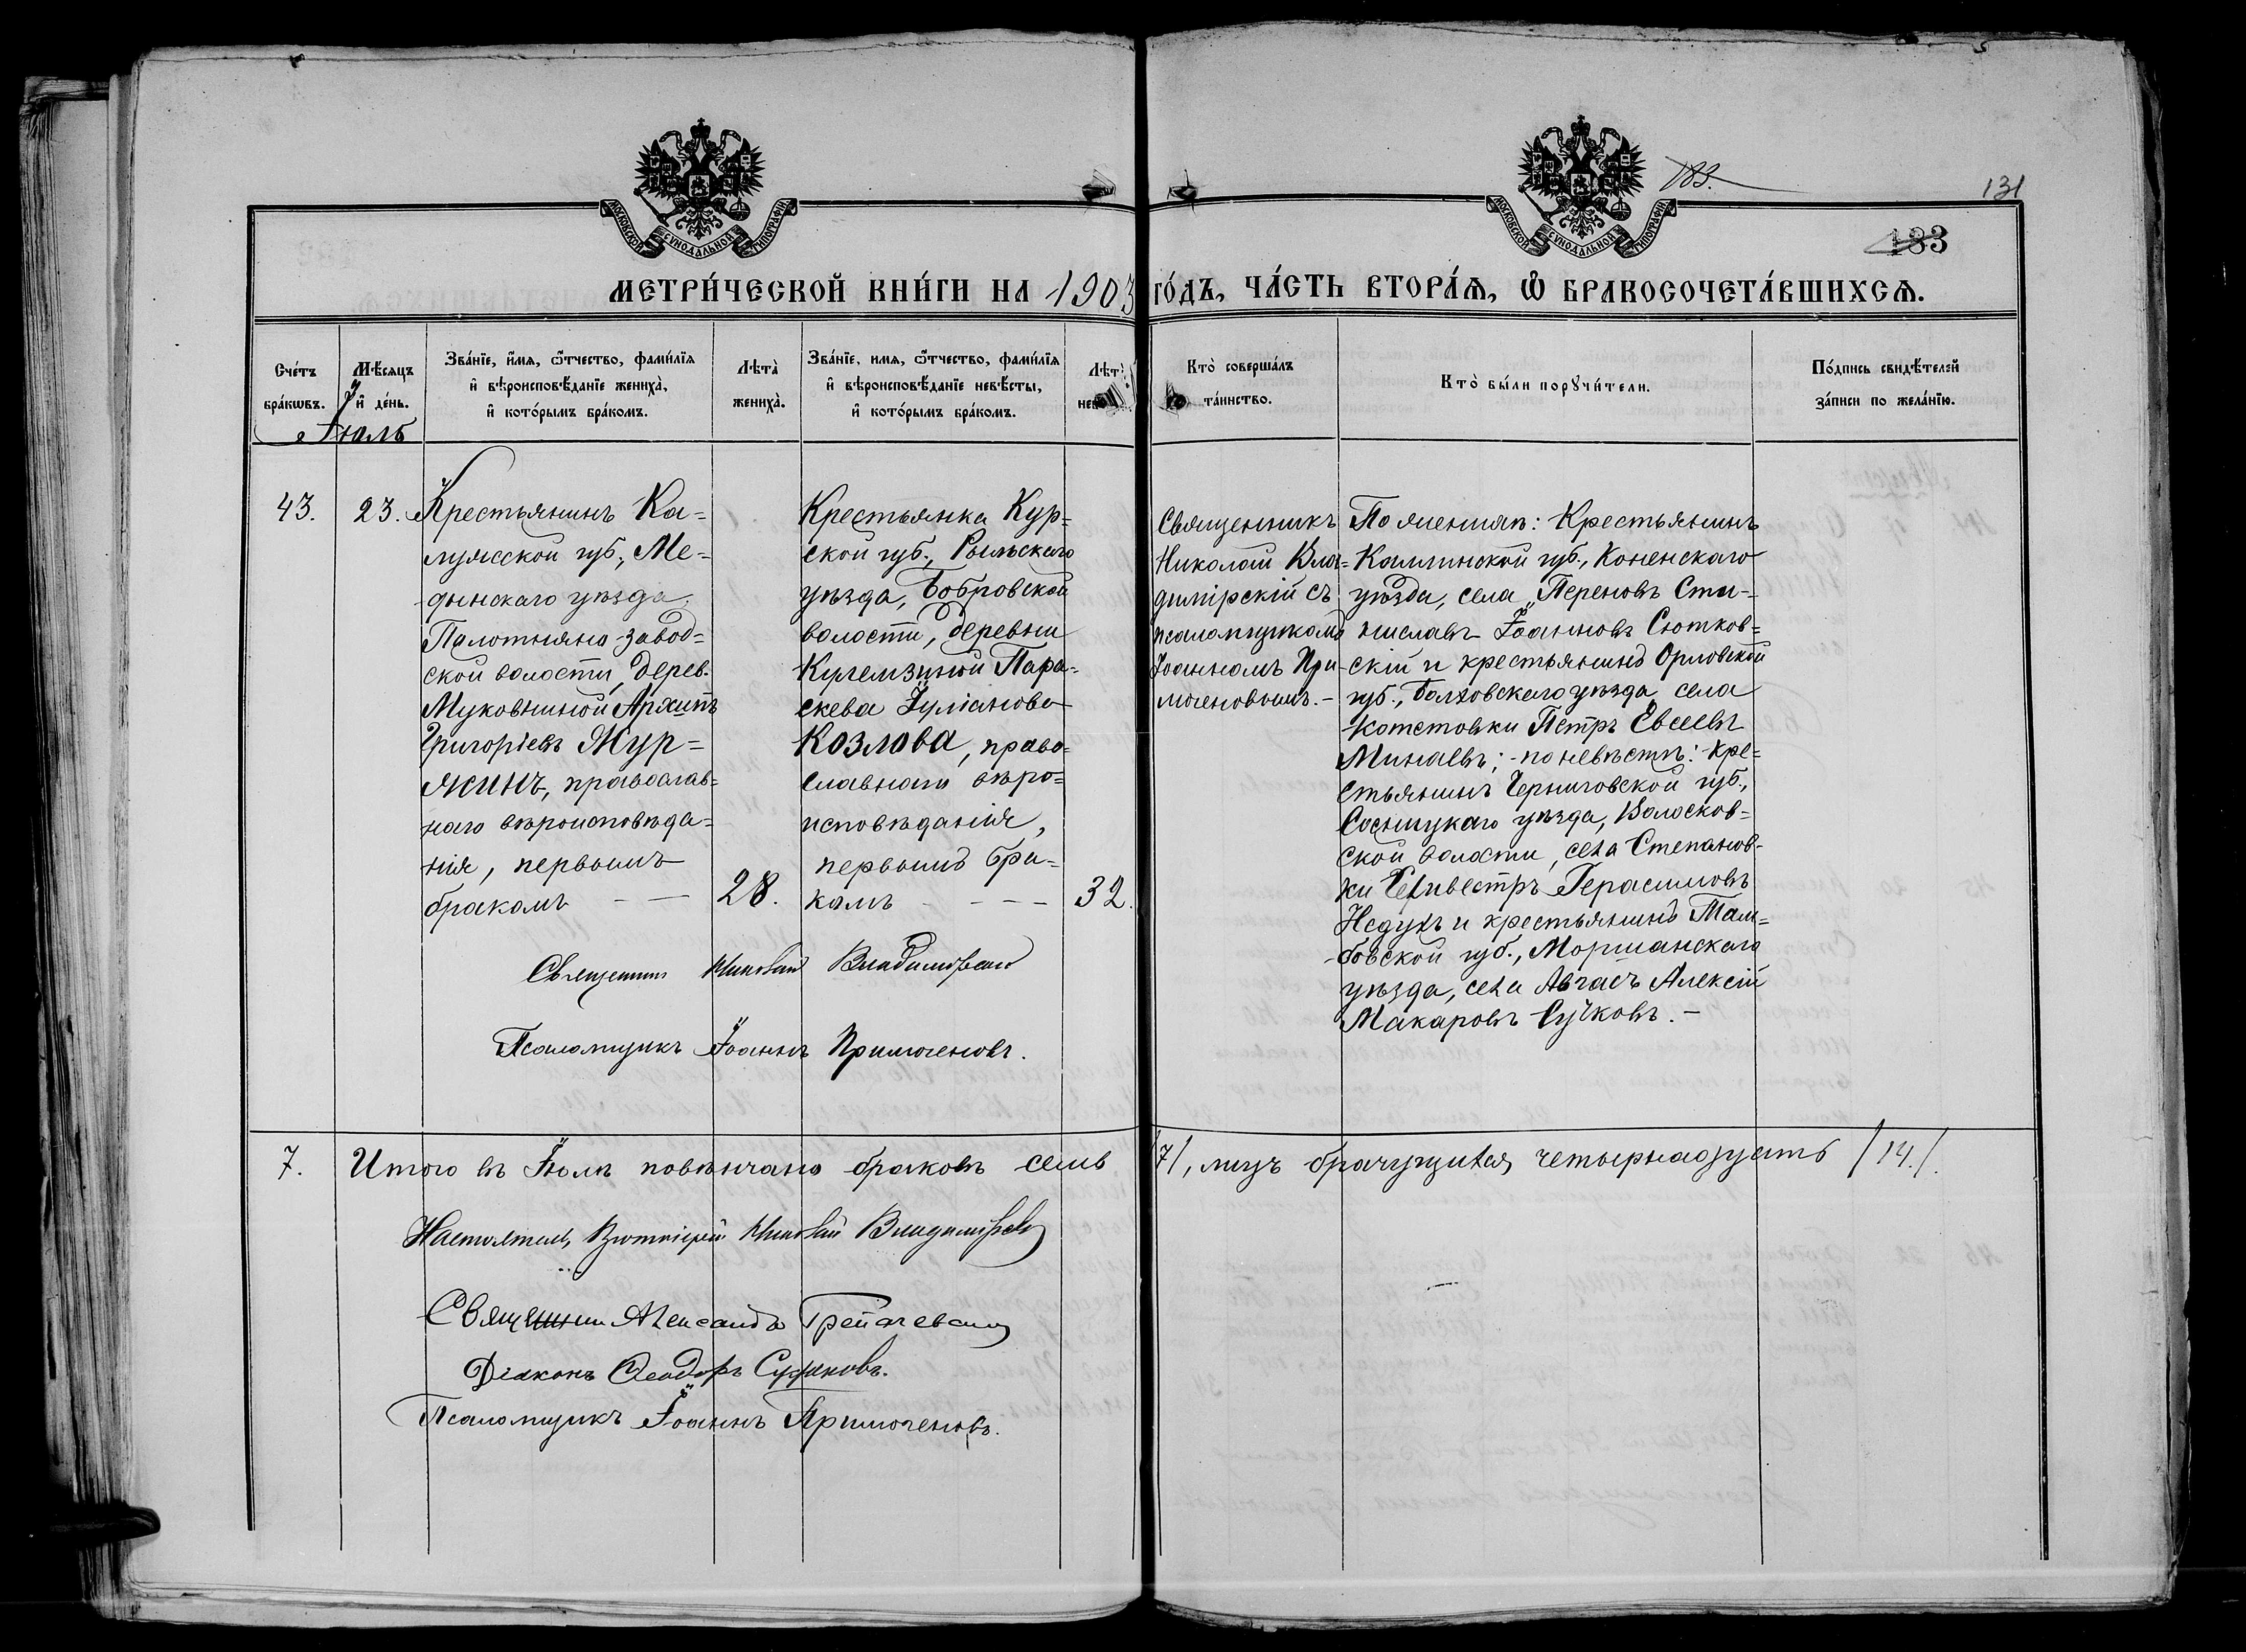 183.
131
183
МОСКОВСКОЙ СѴНОДАЛЬНОЙ ТИПОГРАФІИ
МОСКОВСКОЙ СѴНОДАЛЬНОЙ ТИПОГРАФІИ
МЕТРИ́ЧЕСКОЙ КНИ́ГИ НА 1903 ГО́ДЪ, ЧА́СТЬ ВТОРА́Я, Ѡ БРАКОСОЧЕТА́ВШИХСЯ.
Сче́тъ бра́кѡвъ.
Мѣ́сяцъ и де́нь.
Зва́нїе, и́мя, ѻ҆́тчество, фами́лїя
и вѣроисповѣ́данїе жениха̀,
и кото́рымъ бра́комъ.
Лѣта̀ жениха̀.
Зва́нїе, имя, ѻ҆́тчество, фами́лїя
и вѣроисповѣ́данїе невѣ́сты,
и кото́рымъ бра́комъ.
Кто̀ соверша́лъ та́инство.
Кто̀ бы́ли порꙋчи́тели.
По́дпись свидѣ́телей
за́писи по жела́нїю.
Іюль
43.
23.
Крестьянинъ Ка=
лужской губ., Ме-
дынскаго уѣзда,
Полотняно-завод=
ской волости, дерев.
Муковниной Архипъ
Григоріевъ Жур=
жинъ, православ=
наго вѣроисповѣда=
нія, первымъ
бракомъ
28.
Крестьянка Кур=
ской губ., Рыльскаго
уѣзда, Бобровской
волости, деревни
Кулемзиной Пара-
скева Іуліанова
Козлова, право=
славнаго вѣро=
исповѣданія,
первымъ бра-
комъ
32.
Священникъ
Николай Вла=
димірскій съ
псаломщикомъ
Іоанномъ При
моченовымъ.-
По женихѣ: Крестьянинъ
Калишской губ., Коненскаго
уѣзда, села Переновъ Ста-
ниславъ Іоанновъ Сютков=
скій и крестьянинъ Орловской
губ., Болховскаго уѣзда, села
Котетовки Петръ Евсеевъ
Минаевъ; -по невѣстѣ: кре=
стьянинъ Черниговской губ.,
Сосницкаго уѣзда, Волосков=
ской волости, села Степанов-
ки Селивестръ Герасимовъ
Недухъ и крестьянинъ Там=
бовской губ., Моршанскаго
уѣзда, села Алгасъ Алексій
Макаровъ Сучковъ.-
Священникъ Николай Владимірскій
Псаломщикъ Іоаннъ Примоченовъ.
7.
Итого въ Іюлѣ повѣнчано браковъ семь /7/, лицъ брачущихся четырнадцать /14./.
Настоятель, Протоіерей Николай Владимірскій
Священникъ Александръ
Діаконъ Ѳеодоръ
Псаломщикъ Іоаннъ Примоченовъ.